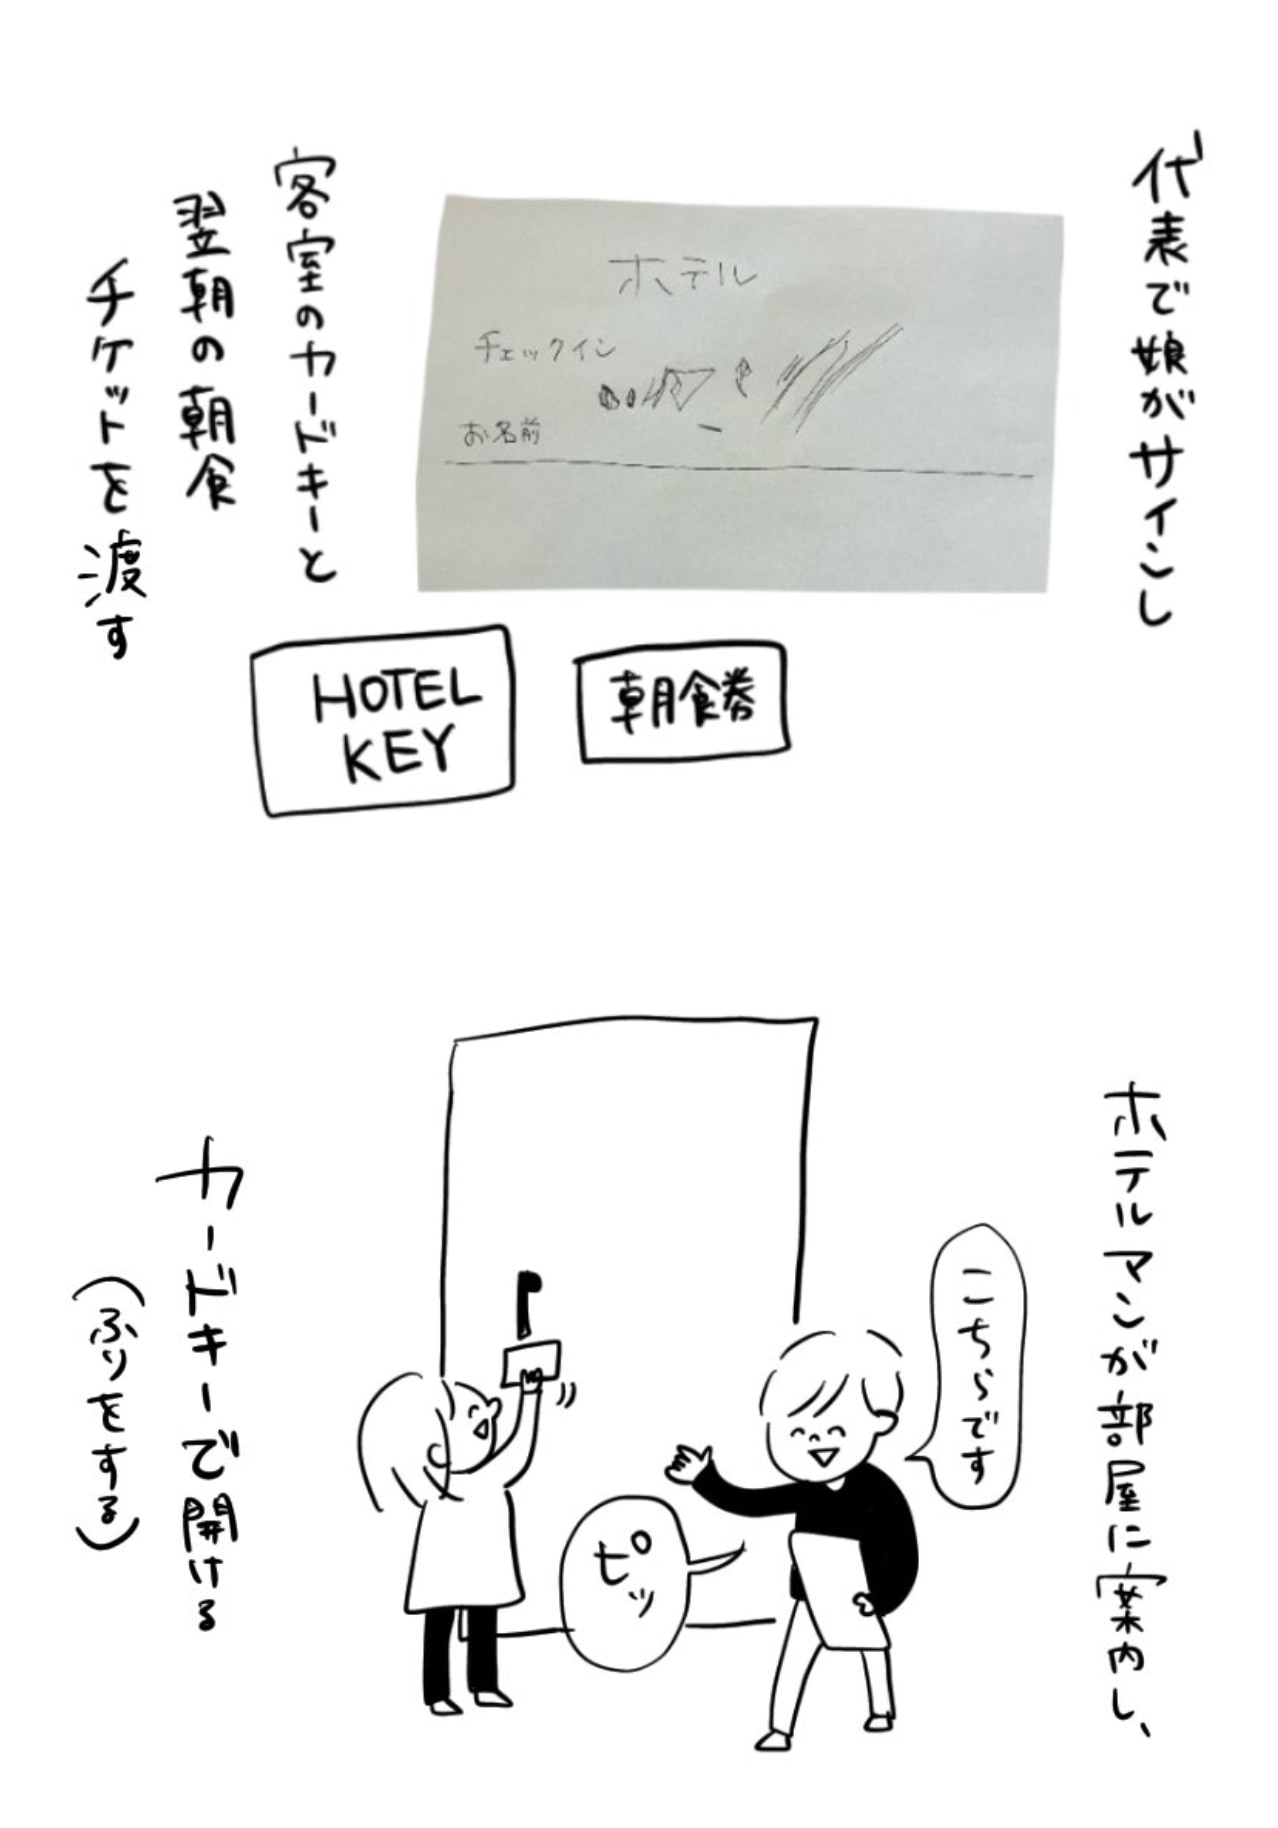 代表で娘がサインし
ホテル
チェックイン
お名前
客室のカードキーと
翌朝の朝食
チケットを渡す
HOTEL
KEY
朝食券
ホテルマンが部屋に案内し、
こちらです
ピッ
カードキーで開ける
(ふりをする)